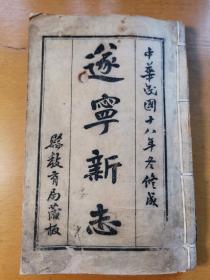 中華民國十八年冬修成
遂寧新志
縣教育局藏板